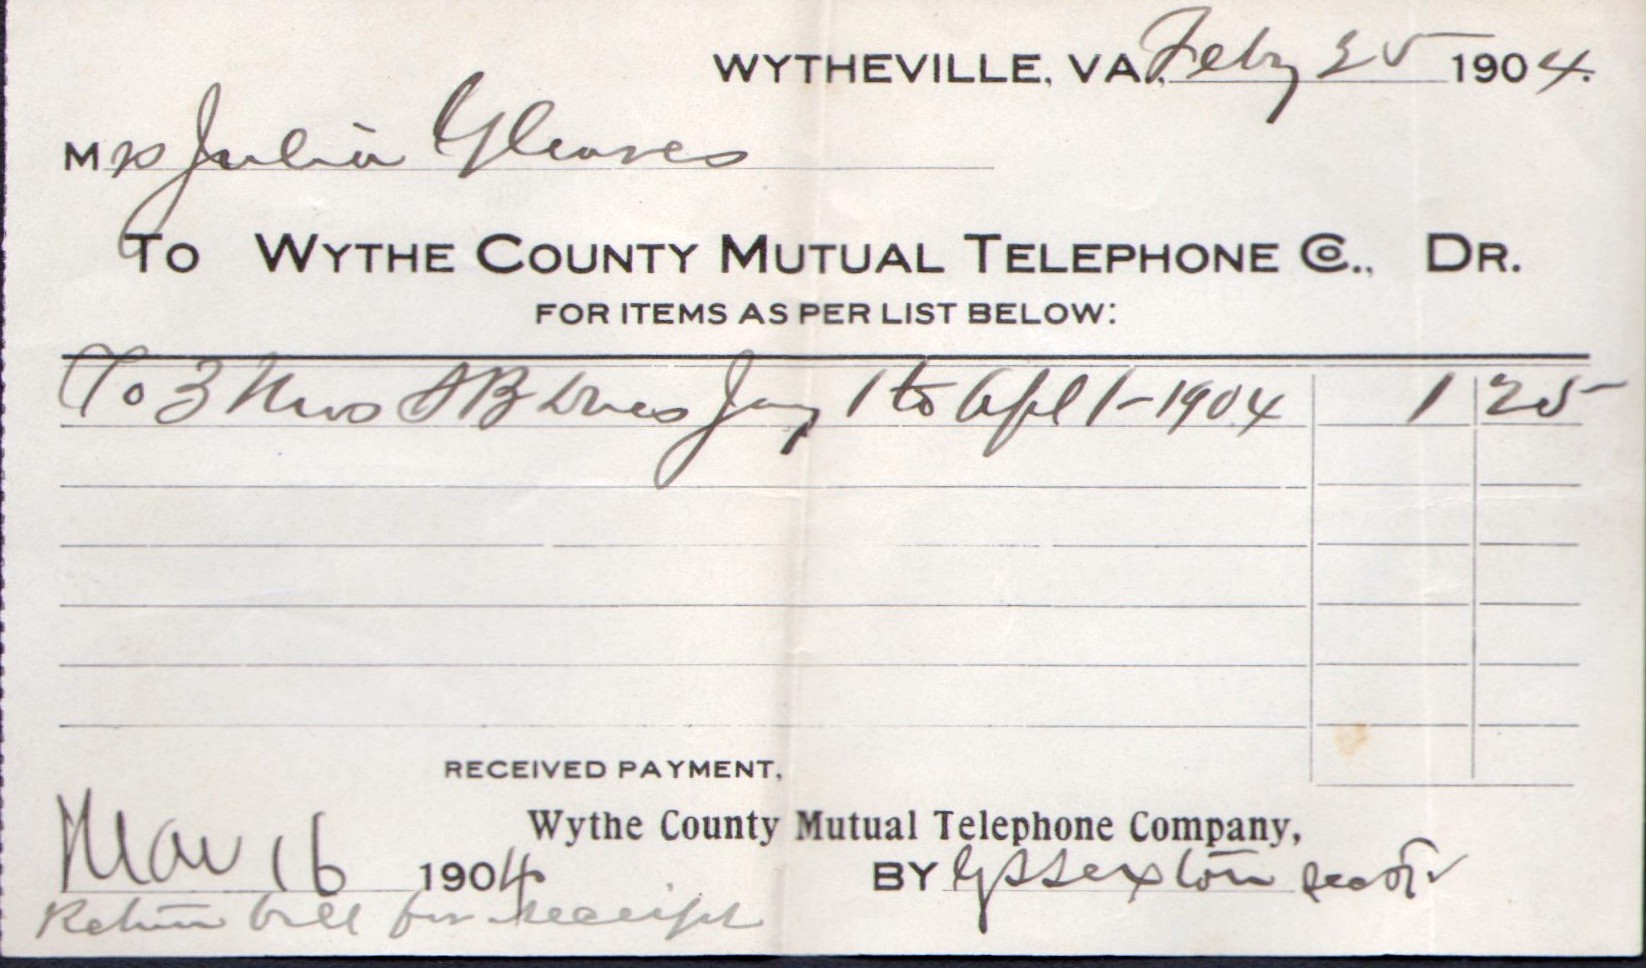 WYTHEVILLE, VA., Feby 25 1904.
Mrs Julia Gleaves
To WYTHE COUNTY MUTUAL TELEPHONE Co., DR.
FOR ITEMS AS PER LIST BELOW:
To 3 Jany 1 to Apl 1-1904 1 25
RECEIVED PAYMENT,
Wythe County Mutual Telephone Company,
Mar 16 1904 BY Sexton
Return bill for receipt